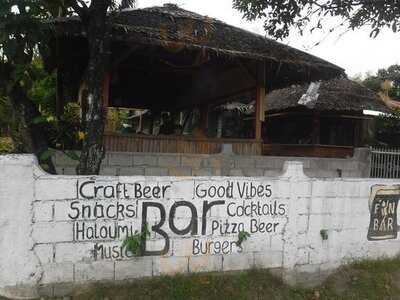 Craft Beer Good Vibes
Snacks Bar Cocktails
Haloumi Pizza Beer
Music Burgers
FUN
BAR